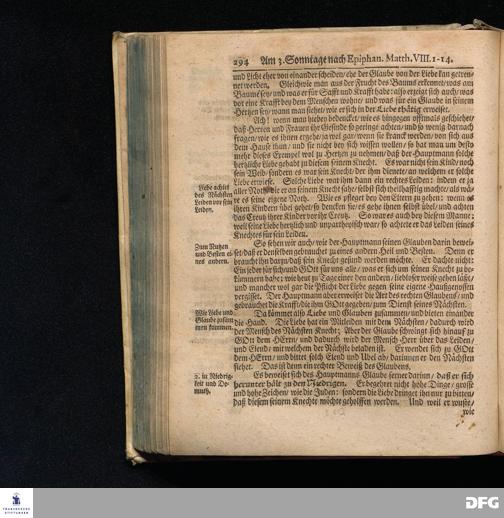 294 Am 3. Sonntage nach Epiphan. Matth. VIII. 1-14.
und Licht eher von einander scheiden/ ehe der Glaube von der Liebe kan getren-
net werden. Gleich wie man aus der Frucht des Baums erkennet/ was am
Baume sey/ und was er für Safft und Krafft habe: also erzeigt sich auch/ was
vor eine Krafft bey dem Menschen wohne/ und was für ein Glaube in seinem
Hertzen sey/ wann man siehet/ wie er sich in der Liebe thätig erweiset.
Ach! wenn man hieben bedencket/ wie es hingegen offtmals geschiehet/
daß Herren und Frauen ihr Gesinde so geringe achten/ und so wenig darnach
fragen/ wie es ihnen ergehe/ ja wol gar/ wenn sie kranck werden/ von sich aus
dem Hause thun/ und sie nicht bey sich wissen wollen/ so hat man um desto
mehr dieses Exempel wol zu Hertzen zu nehmen/ daß der Hauptmann solche
hertzliche Liebe gehabt zu diesem seinem Knecht. Es war nicht sein Kind/ noch
sein Weib/ sondern es war sein Knecht/ der ihm diente/ an welchem er solche
Liebe erwiese. Solche Liebe war ihm dann ein rechtes Leiden: indem er ja
aller Noth/ die er an seinem Knecht sahe/ selbst sich theilhafftig machte/ als wä-
re es seine eigene Noth. Wie es pfleget bey den Eltern zu gehen: wenn es
ihren Kindern übel gehet/ so dencken sie/ es gehe ihnen selbst übel/ und achten
das Creutz ihrer Kinder vor ihr Creutz. So war es auch bey diesem Manne:
weil seine Liebe hertzlich und unpartheyisch war/ so achtete er das Leiden seines
Knechtes für sein Leiden.
Liebe achtet
des Nächsten
Leiden vor sein
Leiden.
So sehen wir auch/ wie der Hauptmann seinen Glauben darin bewei-
set/ daß er denselben gebrauchet zu eines andern Heil und Besten. Denn er
braucht ihn darzu/ daß sein Knecht gesund werden möchte. Er dachte nicht:
Ein jeder für sich/ und GOtt für uns alle/ was er sich um seinen Knecht zu be-
kümmern habe; wie heut zu Tage einer den andern/ liebloser weise gehen läst/
und mancher wol gar die Pflicht der Liebe gegen seine eigene Haußgenossen
vergisset. Der Hauptmann aber erweiset die Art des rechten Glaubens/ und
gebrauchet die Krafft/ die ihm GOtt gegeben/ zum Dienst seines Nächsten.
Zum Nutzen
und Besten ei-
nes andern.
Da kümmet also Liebe und Glauben zusammen/ und bieten einander
die Hand. Die Liebe hat ein Mitleiden mit dem Nächsten/ dadurch wird
der Mensch des Nächsten Knecht; Aber der Glaube schwingt sich hinauf zu
GOtt dem HErrn/ und dadurch wird der Mensch Herr über das Leiden/
und Elend/ mit welchem der Nächste beladen ist. Er wendet sich zu GOtt
dem HErrn/ und bittet solch Elend und Übel ab/ darinnen er den Nächsten
siehet. Das ist denn ein rechter Beweiß des Glaubens.
Wie Liebe und
Glaube zusam-
men kommen.
Es beweiset sich des Hauptmanns Glaube ferner darinn/ daß er sich
herunter hält zu den Niedrigen. Er begehret nicht hohe Dinge/ grosse
und hohe Zeichen/ wie die Juden: sondern die Liebe dringet ihn nur zu bitten/
daß diesem seinem Knechte möchte geholffen werden. Und weil er wuste/
2. in Niedrig-
keit und De-
muth.
wie
FRANCKESCHE
STIFTUNGEN
DFG